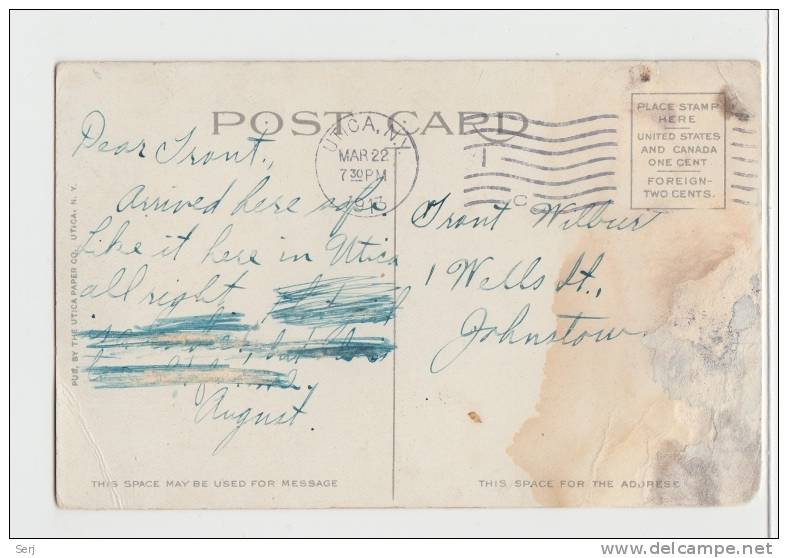 POST CARD
UTICA, N.Y.
MAR 22
7 30 PM
1913
PLACE STAMP
HERE
UNITED STATES
AND CANADA
ONE CENT
FOREIGN-
TWO CENTS.
Dear Grant,
Arrived here safe.
Like it here in Utica
all right.
August
Grant Wilbur
1 Wells St.,
Johnstown
PUB. BY THE UTICA PAPER CO., UTICA, N. Y.
THIS SPACE MAY BE USED FOR MESSAGE
THIS SPACE FOR THE ADDRESS
Serj
delcampe.net